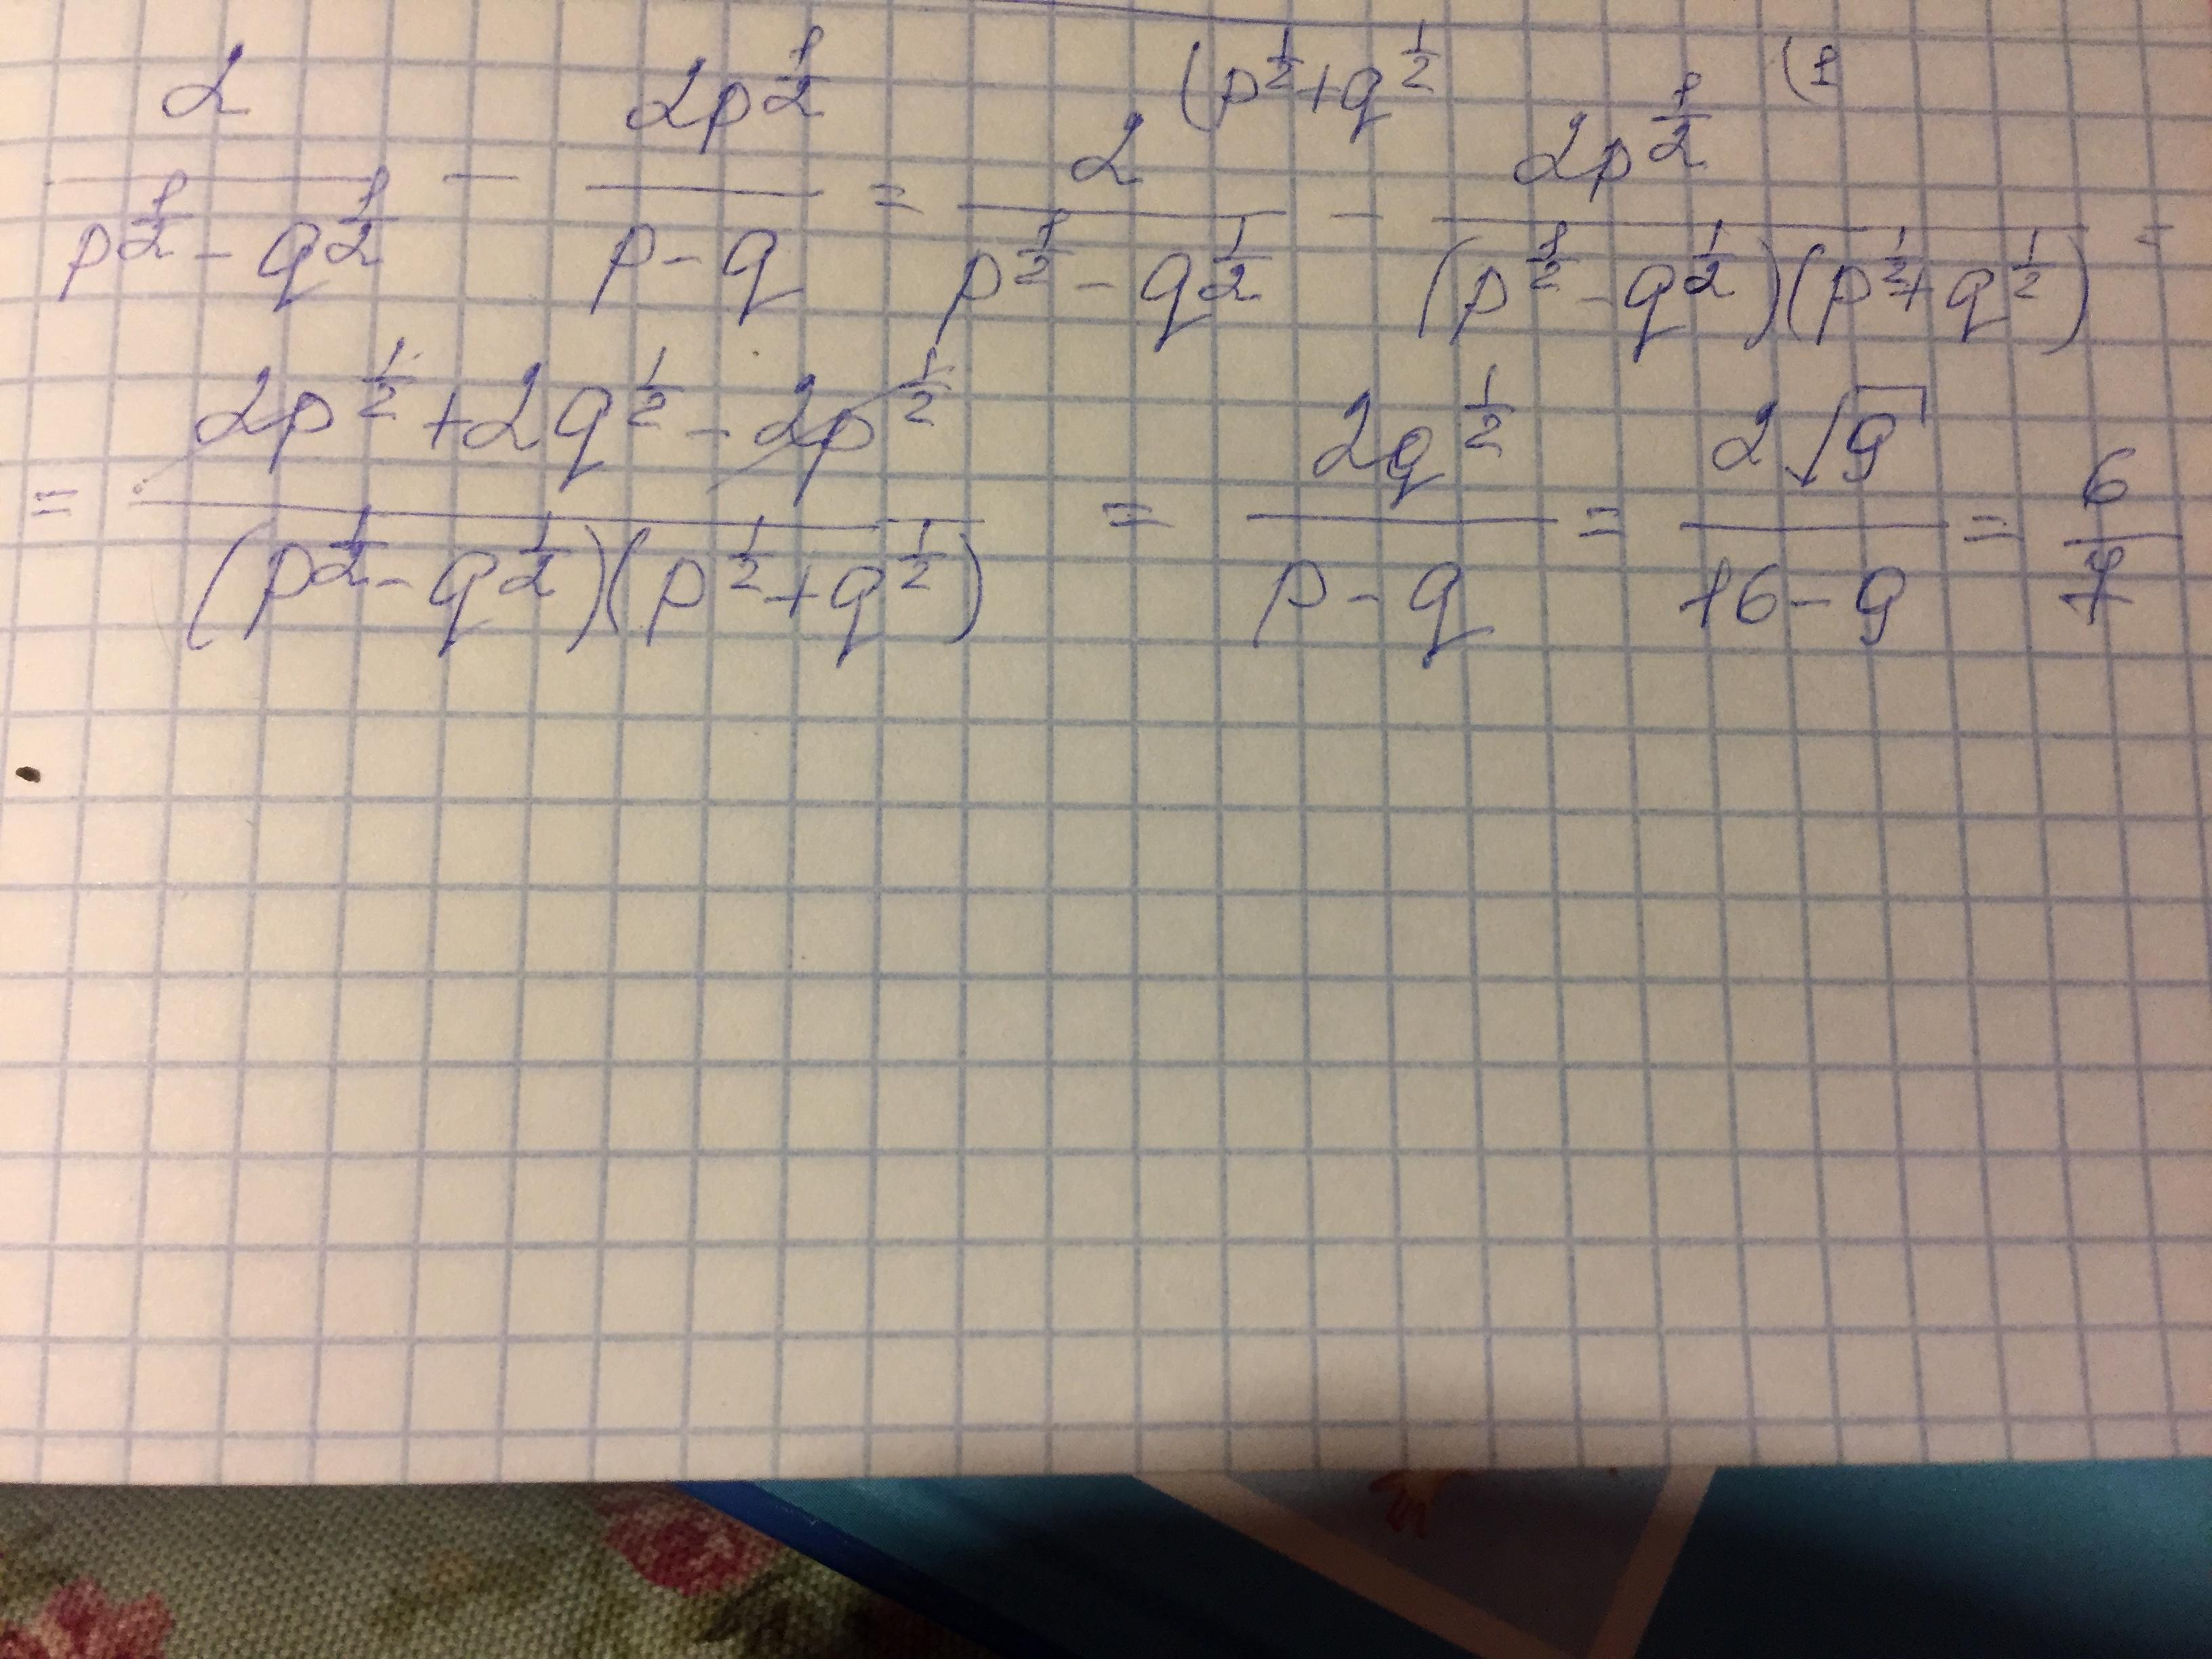 2/(p^(1/2) - q^(1/2)) - 2p^(1/2)/(p - q) = 2 (p^(1/2) + q^(1/2) /(p^(1/2) - q^(1/2)) - 2p^(1/2) (1 /((p^(1/2) - q^(1/2))(p^(1/2) + q^(1/2))) =
= (2p^(1/2) + 2q^(1/2) - 2p^(1/2))/((p^(1/2) - q^(1/2))(p^(1/2) + q^(1/2))) = 2q^(1/2)/(p - q) = 2√9/(16 - 9) = 6/7